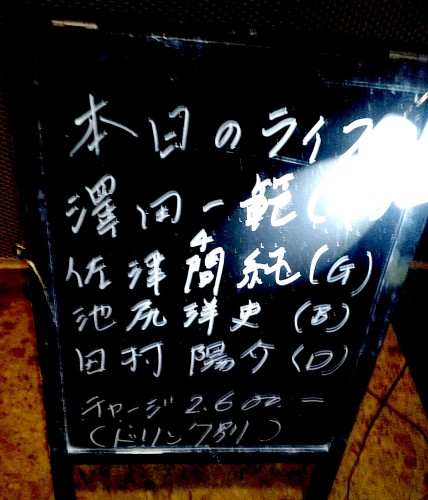 本日のライブ
澤田一範(
4
佐津間純(G)
池尻洋史(B)
田村陽介(D)
チャージ 2.600.=
(ドリンク別)